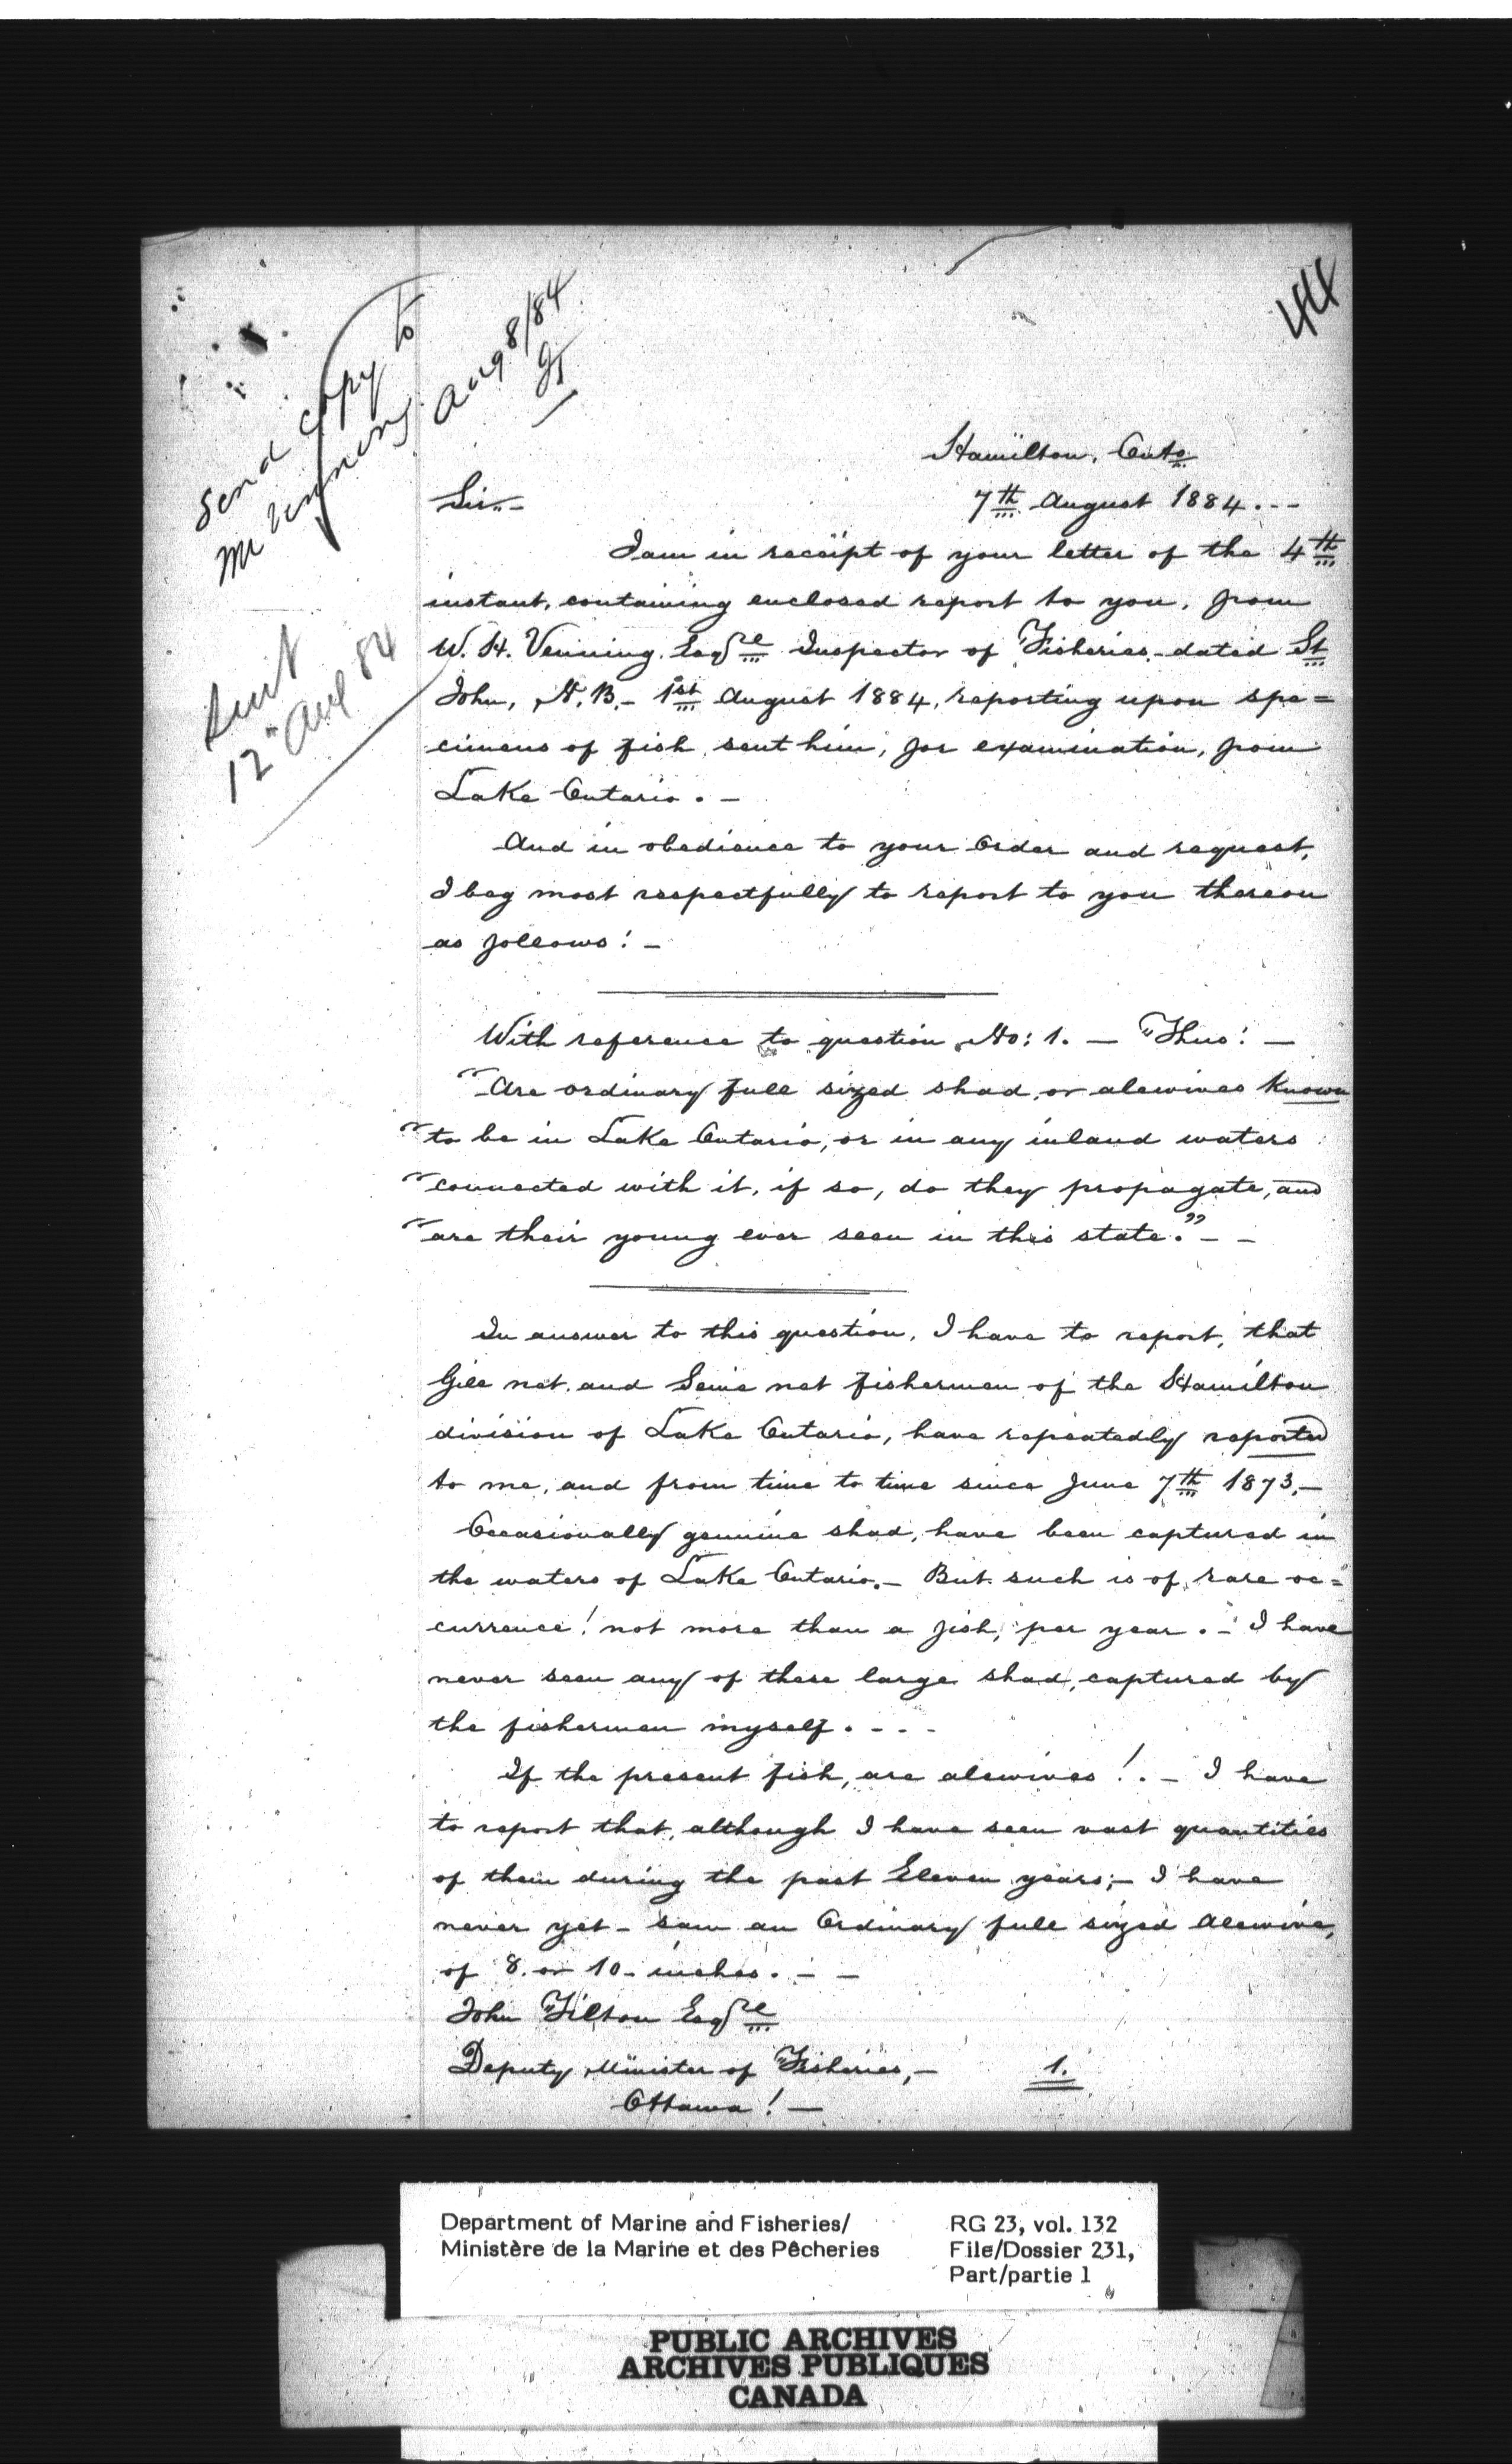 44
Send copy to
Mr Venning
Aug 8/84
JT
Sent
12" Aug 84
Hamilton, Onto
7th August 1884.--
Sir--
I am in receipt of your letter of the 4th
instant, containing enclosed report to you, from
W. H. Venning. Esqre Inspector of Fisheries- dated St
John, N.B.- 1st August 1884, reporting upon spe=
cimens of fish sent him, for examination, from
Lake Ontario. -
And in obedience to your Order and request,
I beg most respectfully to report to you thereon
as follows! -
With reference to question No: 1. - "Thus! -
"Are ordinary full sized shad, or alewives known
"to be in Lake Ontario, or in any inland waters
"connected with it, if so, do they propagate, and
"are their young ever seen in this state." - -
In answer to this question, I have to report, that
Gill net. and Seine net fishermen of the Hamilton
division of Lake Ontario, have repeatedly reported
to me, and from time to time since June 7th 1873,-
Occasionally genuine shad, have been captured in
the waters of Lake Ontario.- But such is of rare oc=
currence! not more than a fish, per year. - I have
never seen any of these large shad, captured by
the fishermen myself. - - -
If the present fish, are alewives!. - I have
to report that, although I have seen vast quantities
of them during the past Eleven years;- I have
never yet - saw an Ordinary full sized Alewive,
of 8. or 10- inches. - -
John Tilton Esqre
Deputy Minister of Fisheries,-
Ottawa! -
1.
Department of Marine and Fisheries/
Ministère de la Marine et des Pêcheries
RG 23, vol. 132
File/Dossier 231,
Part/partie 1
PUBLIC ARCHIVES
ARCHIVES PUBLIQUES
CANADA